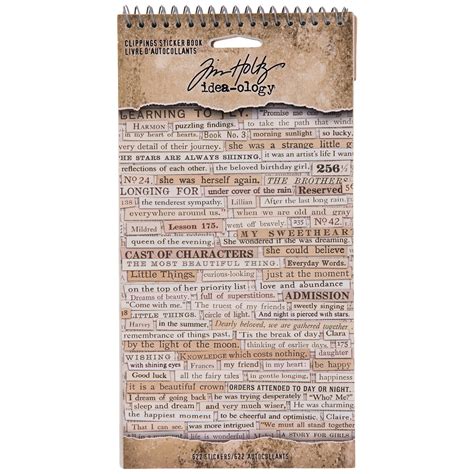 CLIPPINGS STICKER BOOK
LIVRE D'AUTOCOLLANTS
Tim Holtz
idea-ology
LEARNING TO FLY. Promise me
HARMON puzzling findings, to the morning sunlight so lucky.
very detail of their journey. Book No. 3. she was a strange little g
THE STARS ARE ALWAYS SHINING, it was an artist's
reflections of each other. the beloved birthday girl, 256
No 24. she was herself again. THE BROTHERS
LONGING FOR under cover of the rain Reserved
the tenderest sympathy. Lillian After the last long rain,
everywhere around us." when we went off bravely. 235 No 42.
Mildred Lesson 175. MY SWEETHEAR
queen of the evening. She wondered if she was dreaming.
CAST OF CHARACTERS she could believe
THE MOST BEAUTIFUL THING, Everyday Words.
Little Things. curious-looking just at the moment
on the top of her priority list love and abundance
Dreams of beauty. full of superstitions. ADMISSION
"Come with me." The trust of my friends sweetly singing,
LITTLE THINGS. circle of light. And night is pierced with stars.
Harvey in the summer. Dearly beloved, we are gathered together
remembrance of times past. 'Tis the break of day. 175
by the light of the moon. thinking Clara daughter
WISHING KNOWLEDGE which costs nothing.
with shining eyes Frances my friend, in my heart: be happy
Good luck all the fairy tales happy in gentle longing,
it is a beautiful crown ORDERS ATTENDED TO DAY OR NIGHT.
I dream of going away. he was trying desperately "Who? Me?"
sleep and dream and very much overjoyed, We share
the happiest moment to be cheerful and optimistic. Claire.
That I can see. it was more insightful We must all stand together
A STORY FOR GIRLS
622 STICKERS/622 AUTOCOLLANTS